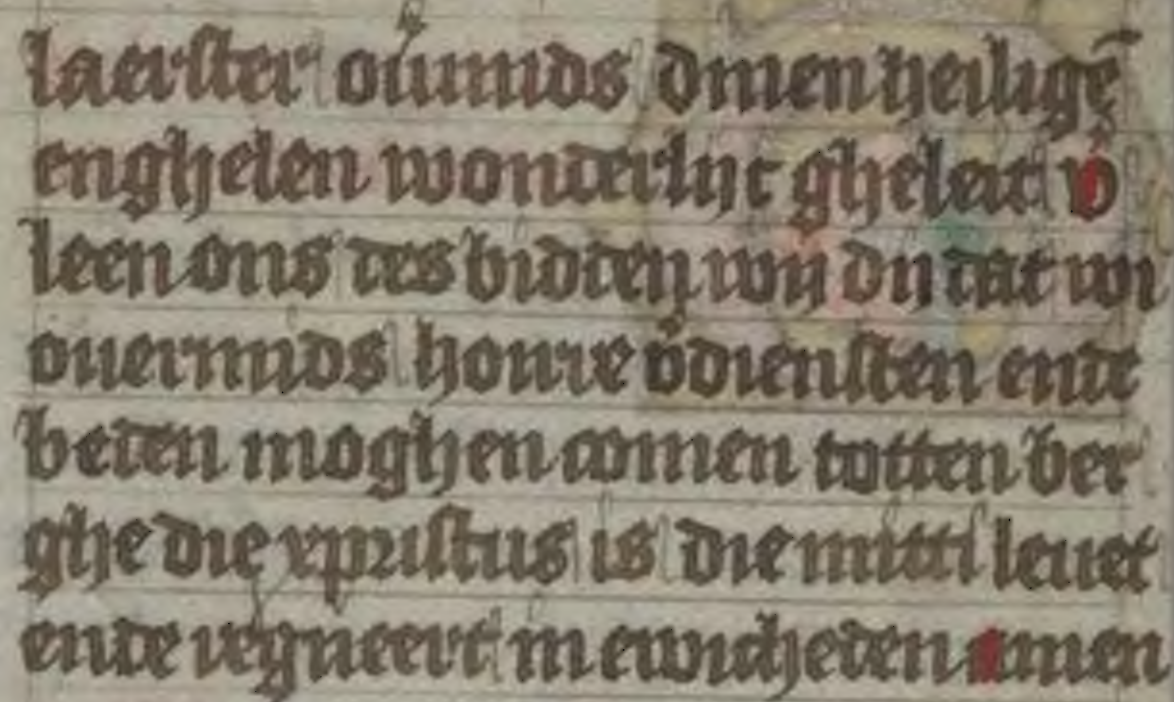 laerster ouͥmids dinen heilighē
enghelen wonderlijc gheleit v̓
leen ons des bidden wij di dat wi
ouermids hoire v̓diensten ende
beden moghen comen totten ber
ghe die xpristus is die mitti leuet
ende regneert in ewicheden amen